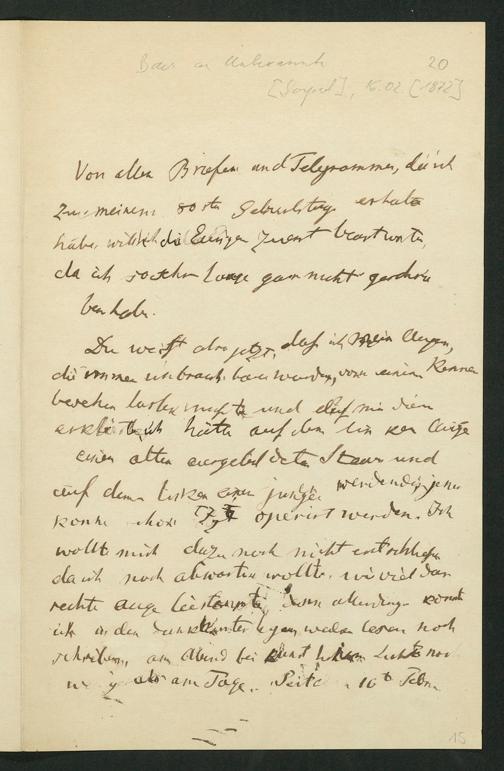 Baer an Unbekannt 20
[Dorpat], 16.02.[1872]
Von allen Briefen und Telegrammen, die ich
zu meinem 80sten Geburtstage erhalten
habe, will ich die Eurigen zuerst beantworten,
da ich so sehr lange gar nicht geschrie
ben habe.
Du weisst also jetzt, dass ich mein Augen,
die immer unbrauchbarer wurden, von einem Kenner
besehen lassen musste und dass mir dieser
erklärte ich hätte auf dem linken Auge
einen alten ausgebildeten Staar und
auf dem einen jungen werdenden, jener
könne schon jetzt operirt werden. Ich
wollte mich dazu noch nicht entschliessen
da ich noch abwarten wollte, wie viel das
rechte Auge leisten denn allerdings konnte
ich in den dunklen Wintertagen weder lesen noch
schreiben, am Abend bei Licht noch
weniger als am Tage. Seit 16t Febr.
15